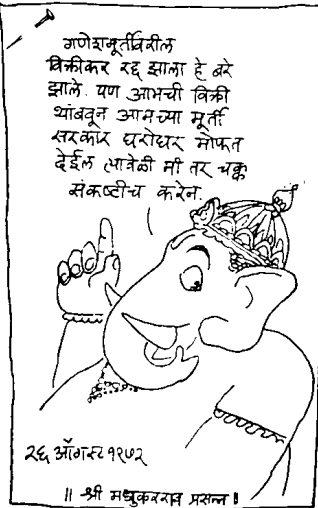 गणेशमूर्तीवरील
विक्रीकर रद्द झाला हे बरे
झाले. पण आमची विक्री
थांबवून आमच्या मूर्ती
सरकार घरोघर मोफत
देईल त्यावेळी मी तर चक्क
संकष्टीच करेन
२६ ऑगस्ट १९७२
॥ श्री मधुकरराव प्रसन्न ॥